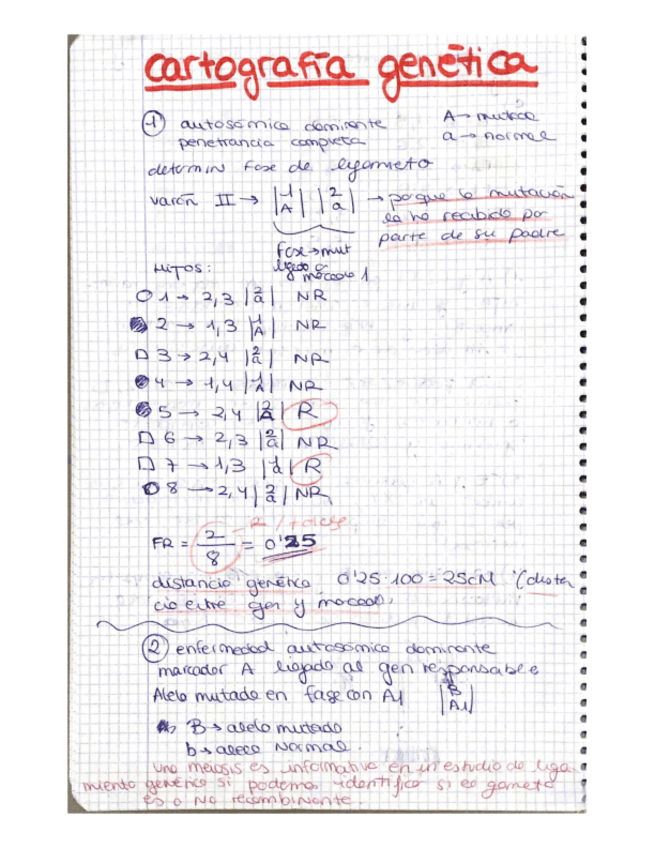 cartografía genética
① autosómica dominante A→ mutada
penetrancia completa a→ normal
determin fase de ligamieto
varón II → |1 A| |2 a| → porque la mutación
la ha recibido por
parte de su padre
Fase→mut
ligado a
marcado 1
HIJOS:
O 1 → 2,3 |2 a| NR
2 → 1,3 |1 A| NR
□ 3 → 2,4 |2 a| NR
4 → 1,4 |1 A| NR
5 → 2,4 |2 A| R
□ 6 → 2,3 |2 a| NR
□ 7 → 1,3 |1 a| R
O 8 → 2,4 |2 a| NR
FR = 2/8 = 0'25
distancia genética 0'25·100 = 25cM (distan
cia entre gen y marcador
② enfermedad autosómica dominante
marcador A ligado al gen responsable
Alelo mutado en fase con A1 |B A1|
B → alelo mutado
b → alelo Normal.
Una meiosis es informativa en un estudio de liga
miento genético si podemos identificar si el gameto
es o no recombinante.